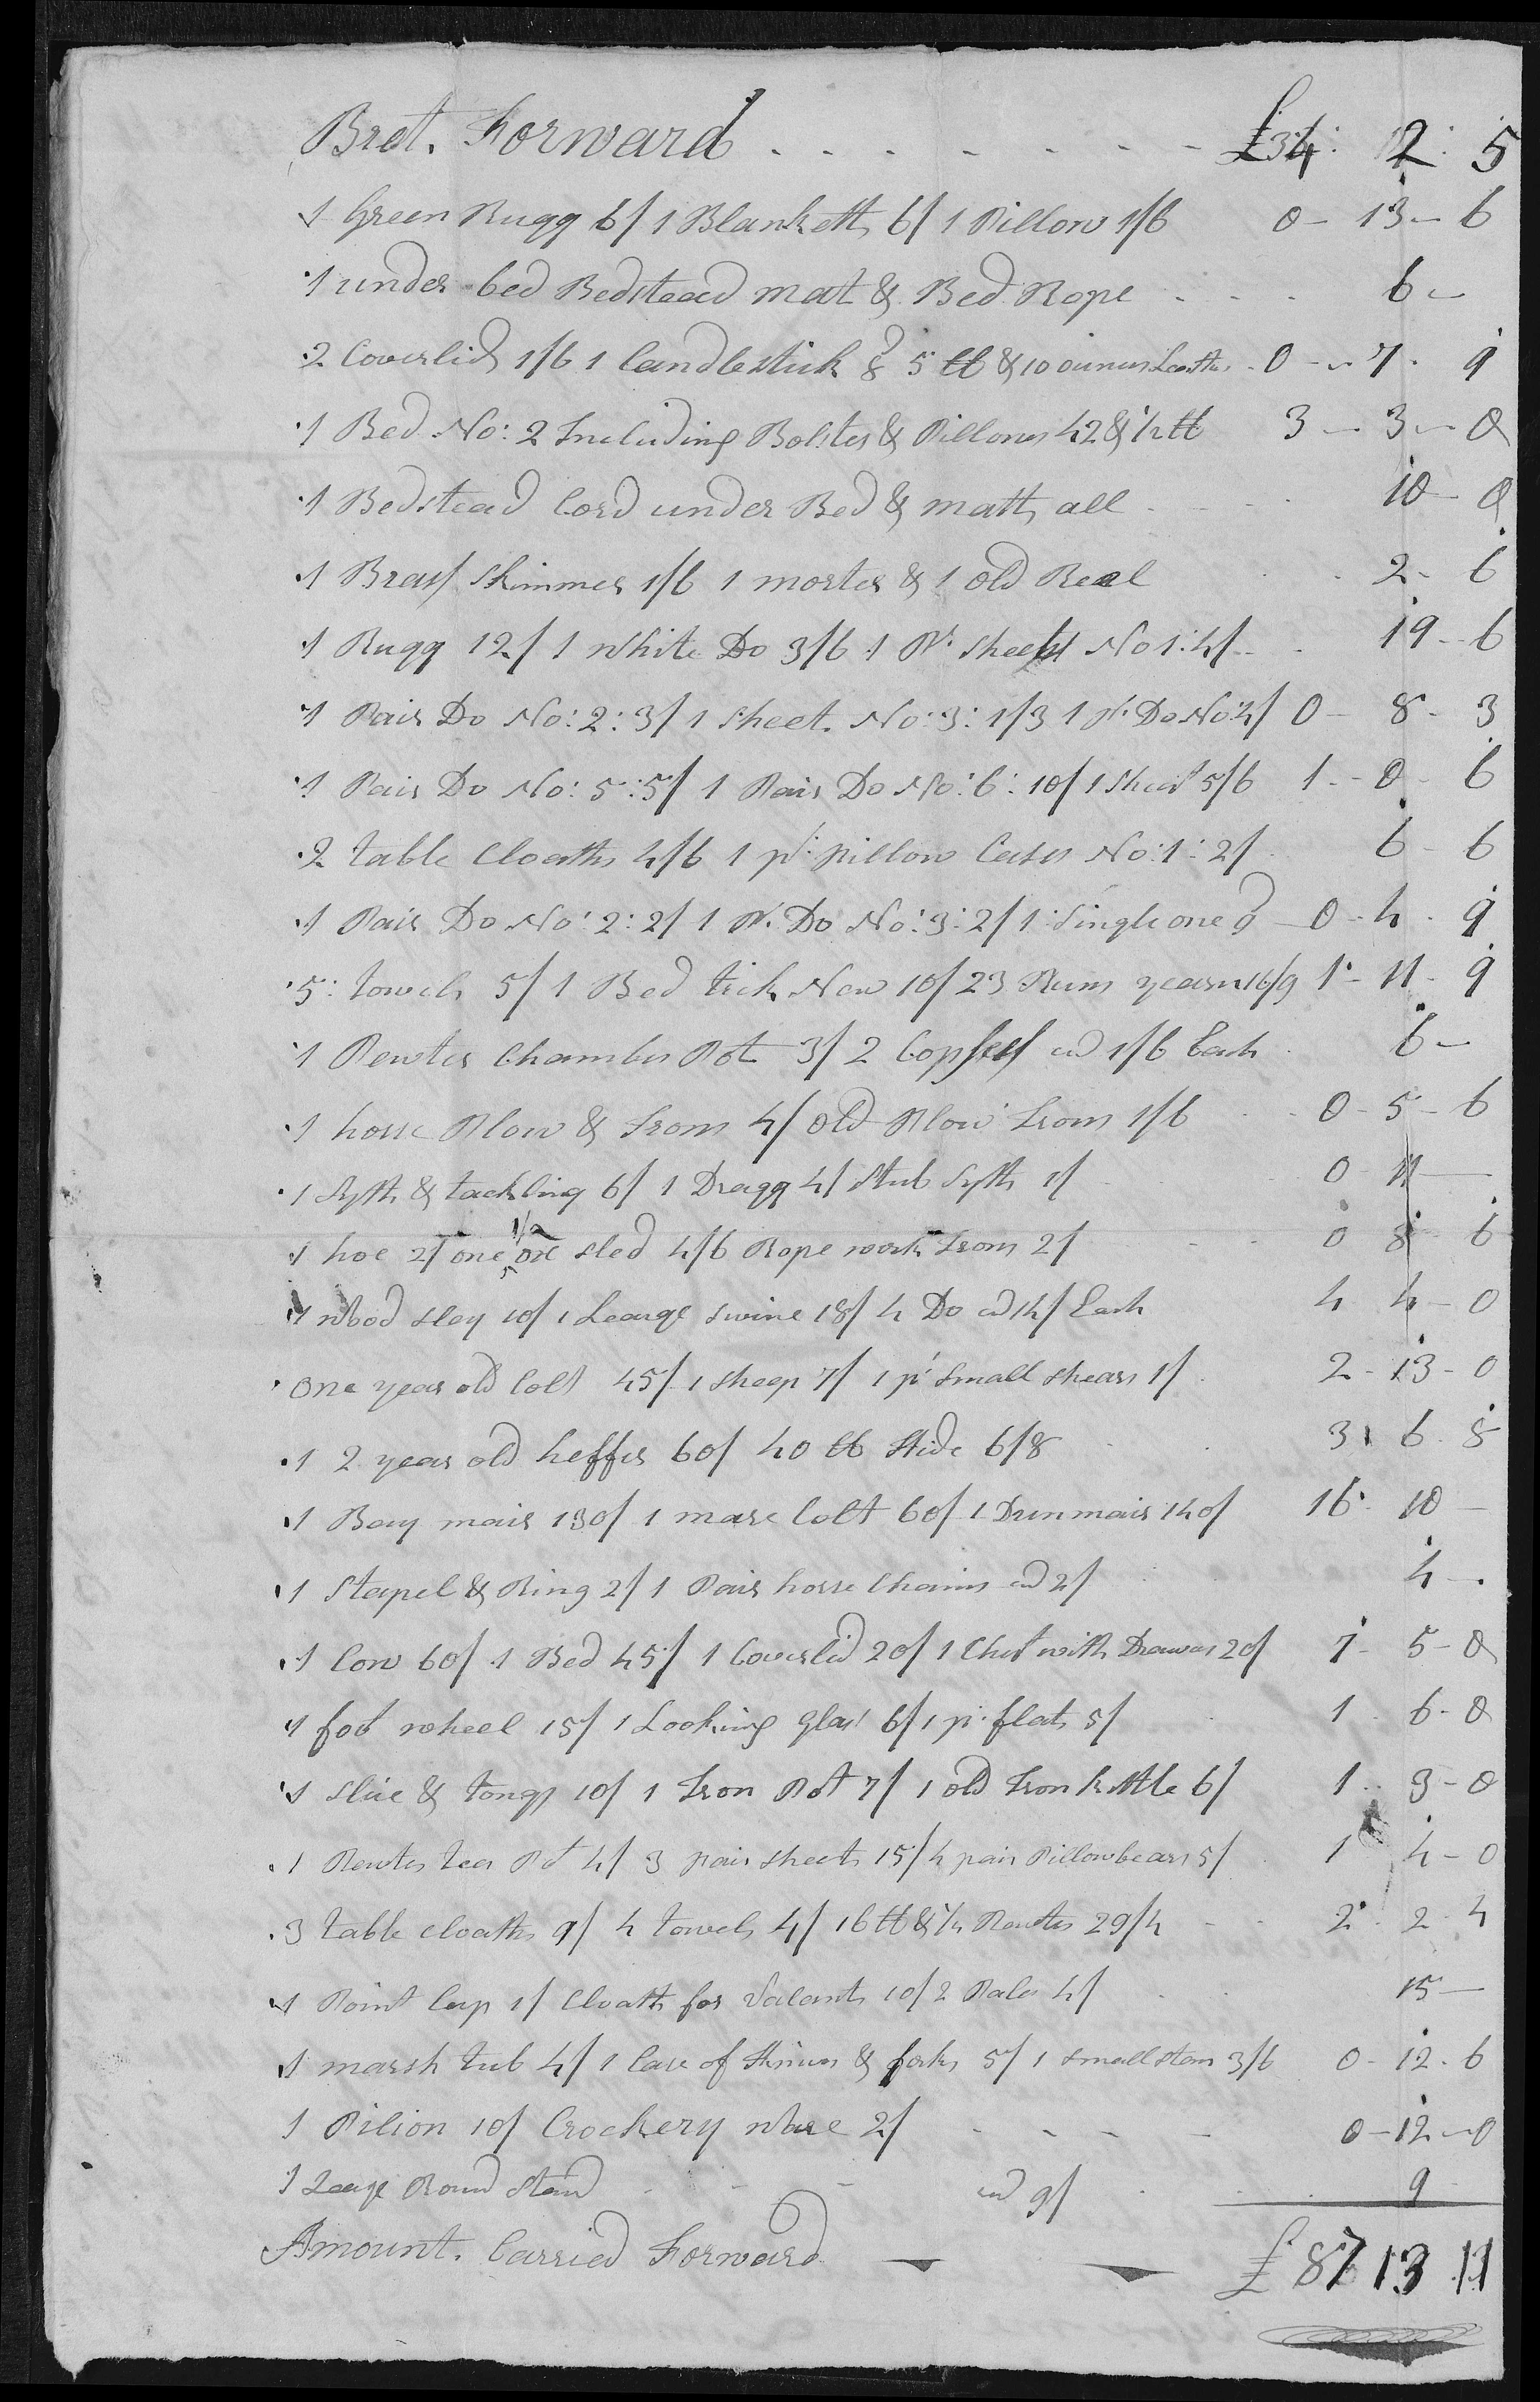 Brot. Forward . . . . . . . £34: 12: 5
1 Green Rugg 6/ 1 Blankett 6/ 1 Pillow 1/6 0 - 13 - 6
1 under bed Bedstead mat & Bed Rope . . . 6 -
2 Coverlids 1/6 1 Candlestick 5 lb & 10 ounces 0 - 7 - 9
1 Bed No: 2 Including Bolster & Pillows 42 & 1/2 lb 3 - 3 - 0
1 Bedstead Cord under Bed & matt all . . . 10 - 0
1 Brass Skimmer 1/6 1 morter & 1 old Reel . . 2 - 6
1 Rugg 12/ 1 White Do 3/6 1 Pr. Sheets No 1: 4/ . . 19 - 6
1 Pair Do No: 2: 3/ 1 Sheet. No: 3: 1/3 1 Pr. Do No: 4/ 0 - 8 - 3
1 Pair Do No: 5: 5/ 1 Pair Do No: 6: 10/ 1 Sheet 5/6 1 - 0 - 6
2 table Cloaths 4/6 1 pr: pillow Cases No: 1: 2/ 6 - 6
1 Pair Do No: 2: 2/ 1 Pr. Do No: 3: 2/ 1 Single one 9 0 - 4 - 9
5: towels 5/ 1 Bed tick New 10/ 23 Runs yearn 16/9 1 - 11 - 9
1 Pewter Chamber Pot 3/ 2 at 1/6 Each 6 -
1 horse Plow & Irons 4/ old Plow Irons 1/6 0 - 5 - 6
1 Syth & tackling 6/ 1 Dragg 4/ Stub Syth 1/ 0 - 11 -
1 hoe 2/ one ox sled 4/6 Rope work Irons 2/ 0 8 - 6
1 wood sley 10/ 1 Learge swine 18/ 4 Do at 14/ Each 4 4 - 0
one year old Colt 45/ 1 sheep 7/ 1 pr small shears 1/ 2 - 13 - 0
1 2 year old heffer 60/ 40 lb Hide 6/8 3 6 8
1 Bay mair 130/ 1 mare Colt 60/ 1 Dun mair 140/ 16 10 -
1 Stapel & Ring 2/ 1 Pair horse Chains at 2/ 4 -
1 Cow 60/ 1 Bed 45/ 1 Coverlid 20/ 1 Chest with Drawer 20/ 7 - 5 - 0
1 foot wheel 15/ 1 Looking Glass 6/ 1 pr. flats 5/ 1 6 - 0
1 Slice & tongs 10/ 1 Iron Pot 7/ 1 old Iron kittle 6/ 1 3 - 0
1 Pewter tea Pot 4/ 3 pair sheets 15/ 4 pair Pillowbears 5/ 1 4 - 0
3 table cloaths 9/ 4 towels 4/ 16 lb & 1/4 Pewter 29/4 2 - 2 - 4
1 Point Cup 1/ Cloath for Valants 10/ 2 Pales 4/ 15 -
1 marsh tub 4/ 1 Case of knives & forks 5/ 1 small 3/6 0 - 12 - 6
1 Pilion 10/ Crockery Ware 2/ . . . 0 - 12 - 0
1 Learge Round Stand at 9/ 9
Amount. Carried Forward £ 87 13 11